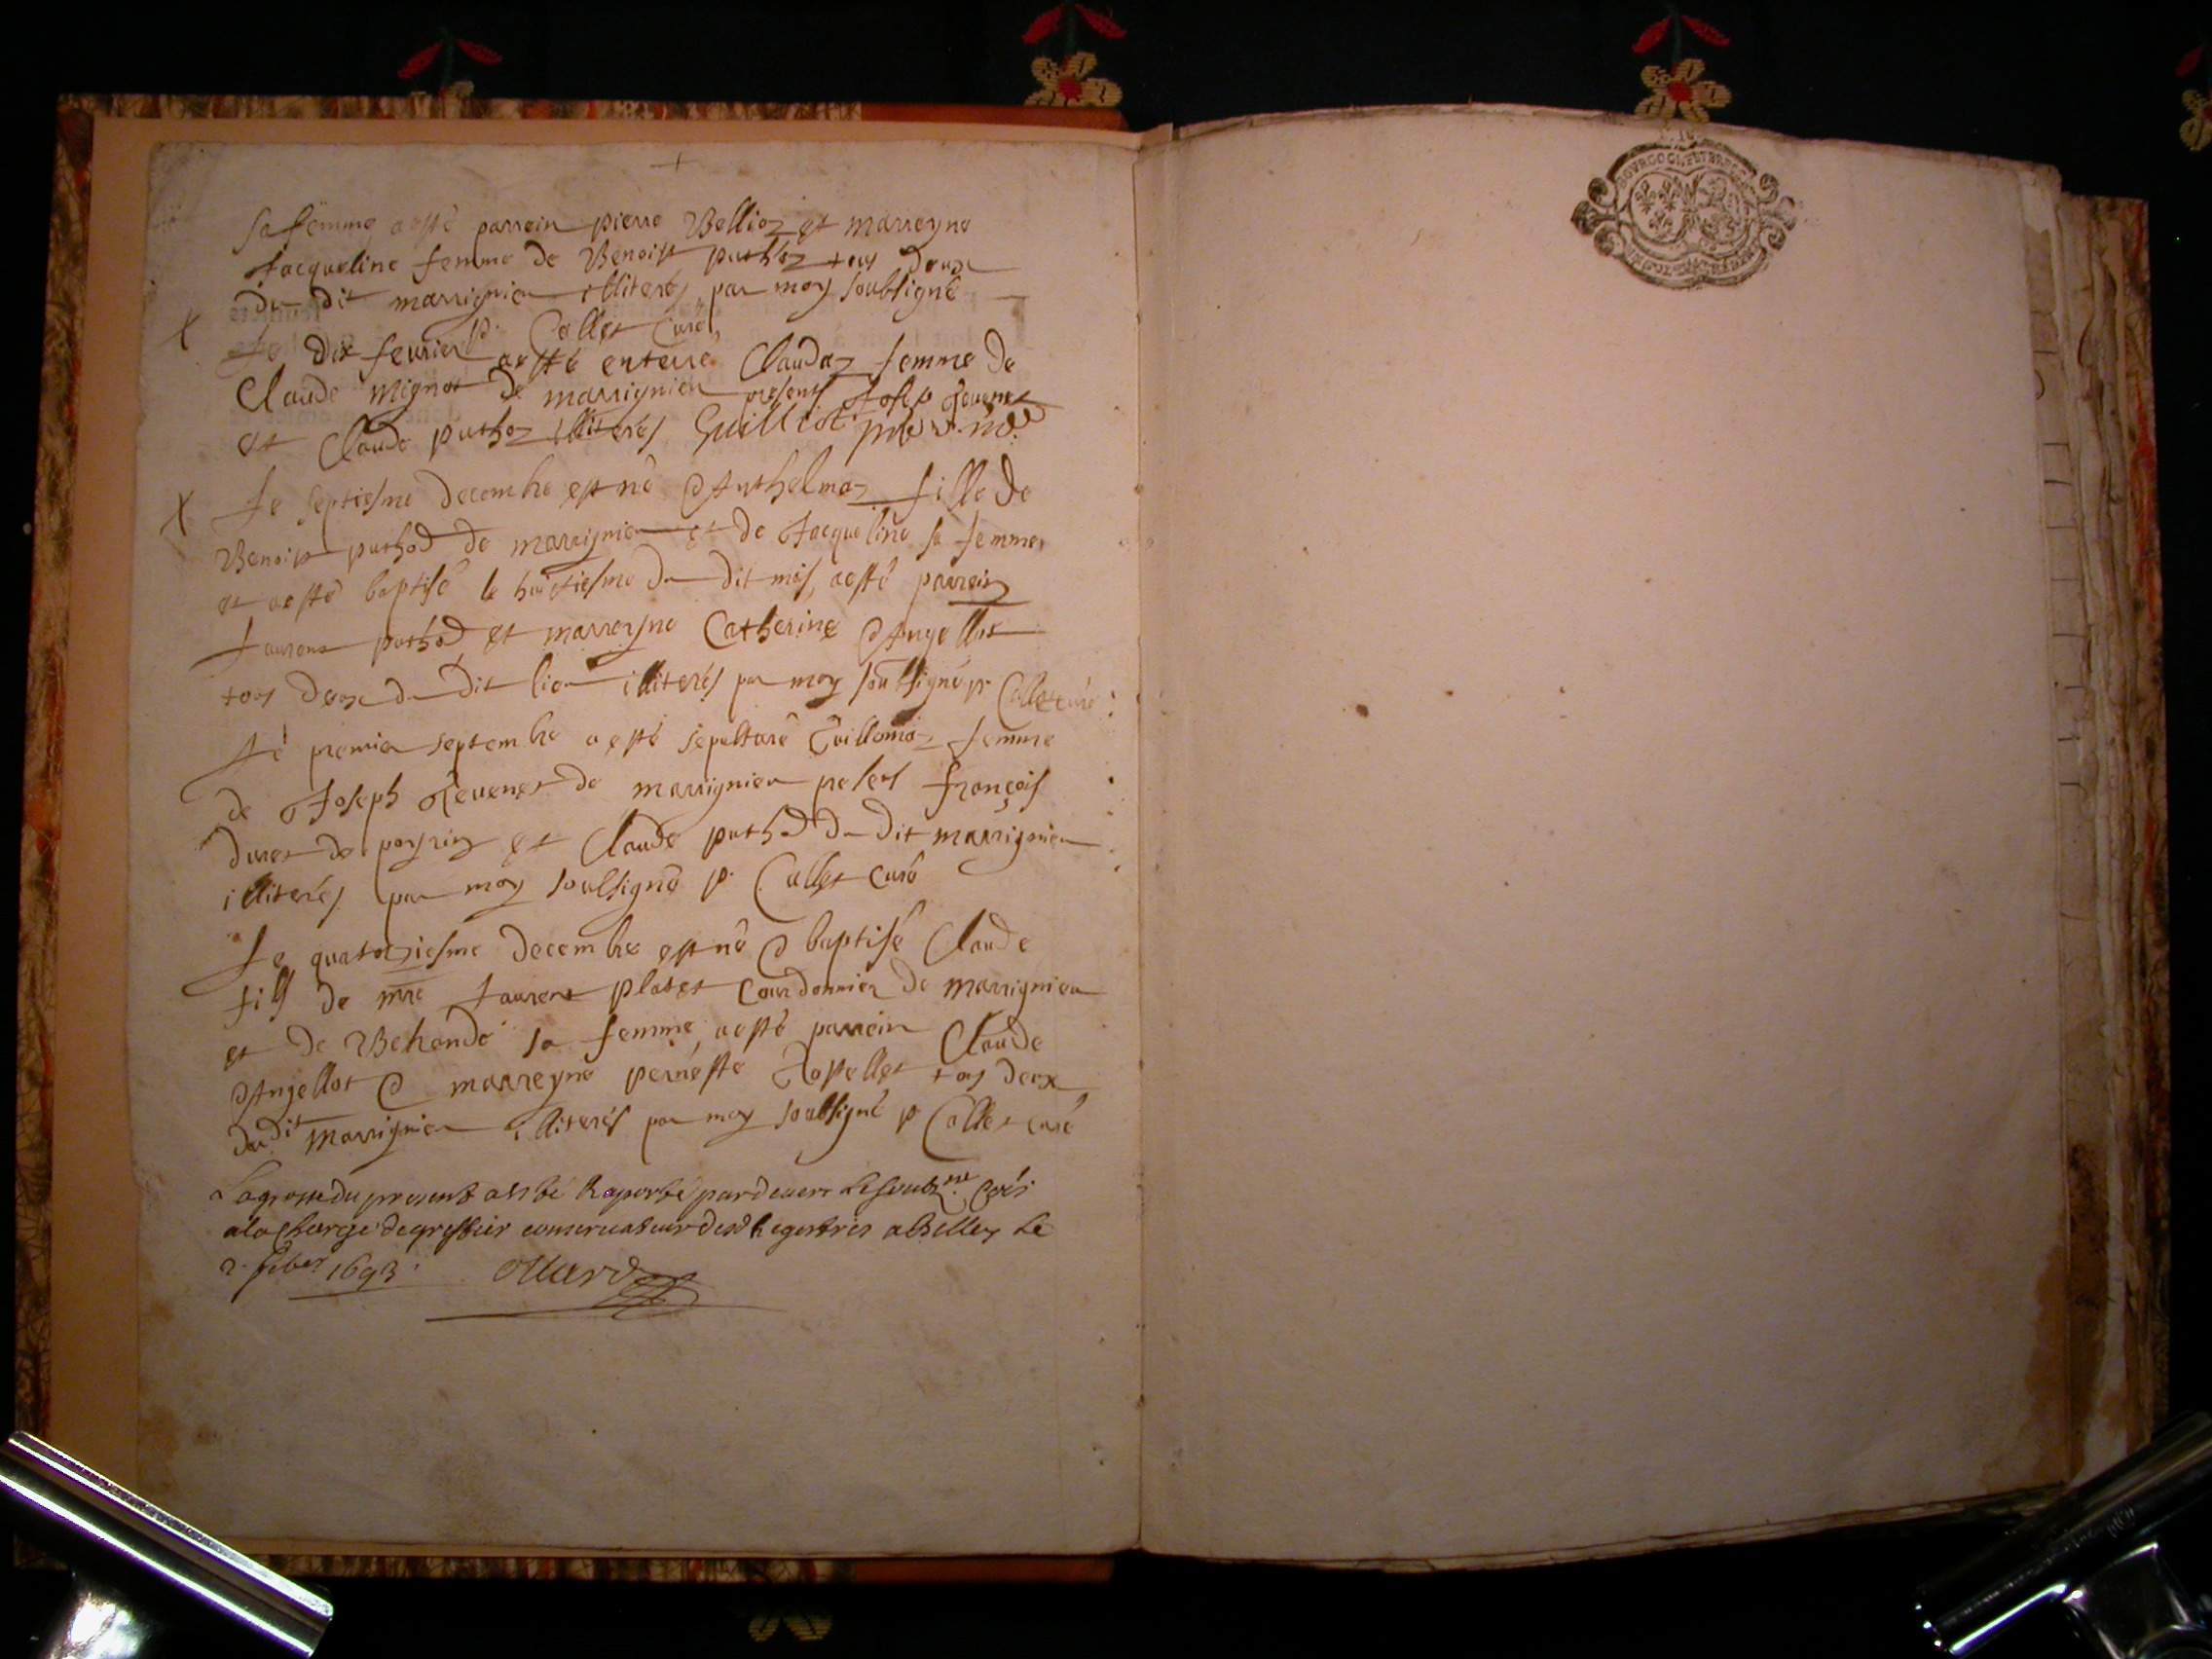 sa femme a esté parrein pierre Bellioz et marreyne
Jacqueline femme de Benoist puthoz tous deux
du dit marrignieu illiterés par moy soubsigné
p. Callet Curé
Le dix feurier a esté enterré Claudaz femme de
Claude Mignot de marrignieu presents Joseph Reuenet
et Claude puthoz illiterés Guilliot
Le septiesme decembre est né Anthelmaz fille de
Benoist puthod de marrignieu et de Jacqueline sa femme
et a esté baptisé le huictiesme du dit mois, a esté parrein
Laurent puthod et marreyne Catherine Angellot
tous deux du dit lieu illiterés par moy soubsigné p. Callet curé
Le premier septembre a esté sepulturé Guillomaz femme
de Joseph Reuenet de marrignieu presens françois
duret de peyrieu et Claude puthod du dit marrignieu
illiterés par moy soubsigné p. Callet curé
Le quatorziesme decembre est né & baptisé Claude
fils de mre Laurent platet Courdonnier de marrignieu
et de sa femme, a esté parrein Claude
Angellot & marreyne pernette tous deux
du dit marrignieu illiterés par moy soubsigné p. Callet curé
La grosse du present a esté Raporté pardeuers Le soubzne
a la charge de greffier conseruateur desd Registres a Belley Le
2. 1693
BOVRGOGNE ET BRESSE